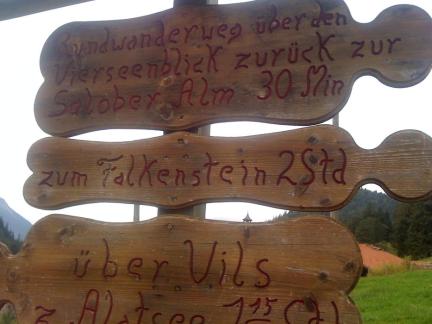 Rundwanderweg über den
Vierseenblick zurück zur
Salober Alm 30 Min
zum Falkenstein 2Std
über Vils
z. Alatsee 1¹⁵ Std